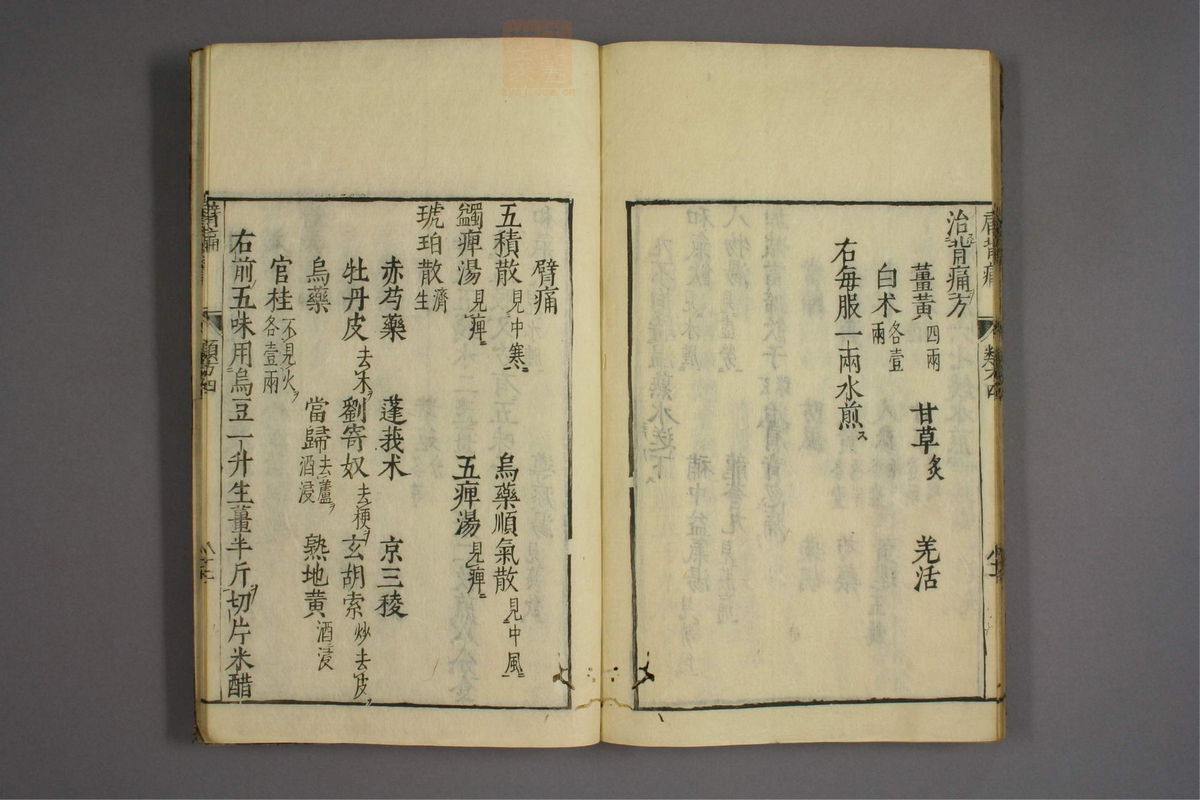 治背痛方
薑黃四兩 甘草炙 羌活
白术各壹兩
右每服一兩水煎
臂痛
五積散見中寒 烏藥順氣散見中風
蠲痺湯見痺 五痺湯見痺
琥珀散濟生
赤芍藥 蓬莪术 京三稜
牡丹皮去木 劉寄奴去梗 玄胡索炒去皮
烏藥 當歸去蘆酒浸 熟地黃酒浸
官桂不見火各壹兩
右前五味用烏豆一升生薑半斤切片米醋
臂痛 類方四